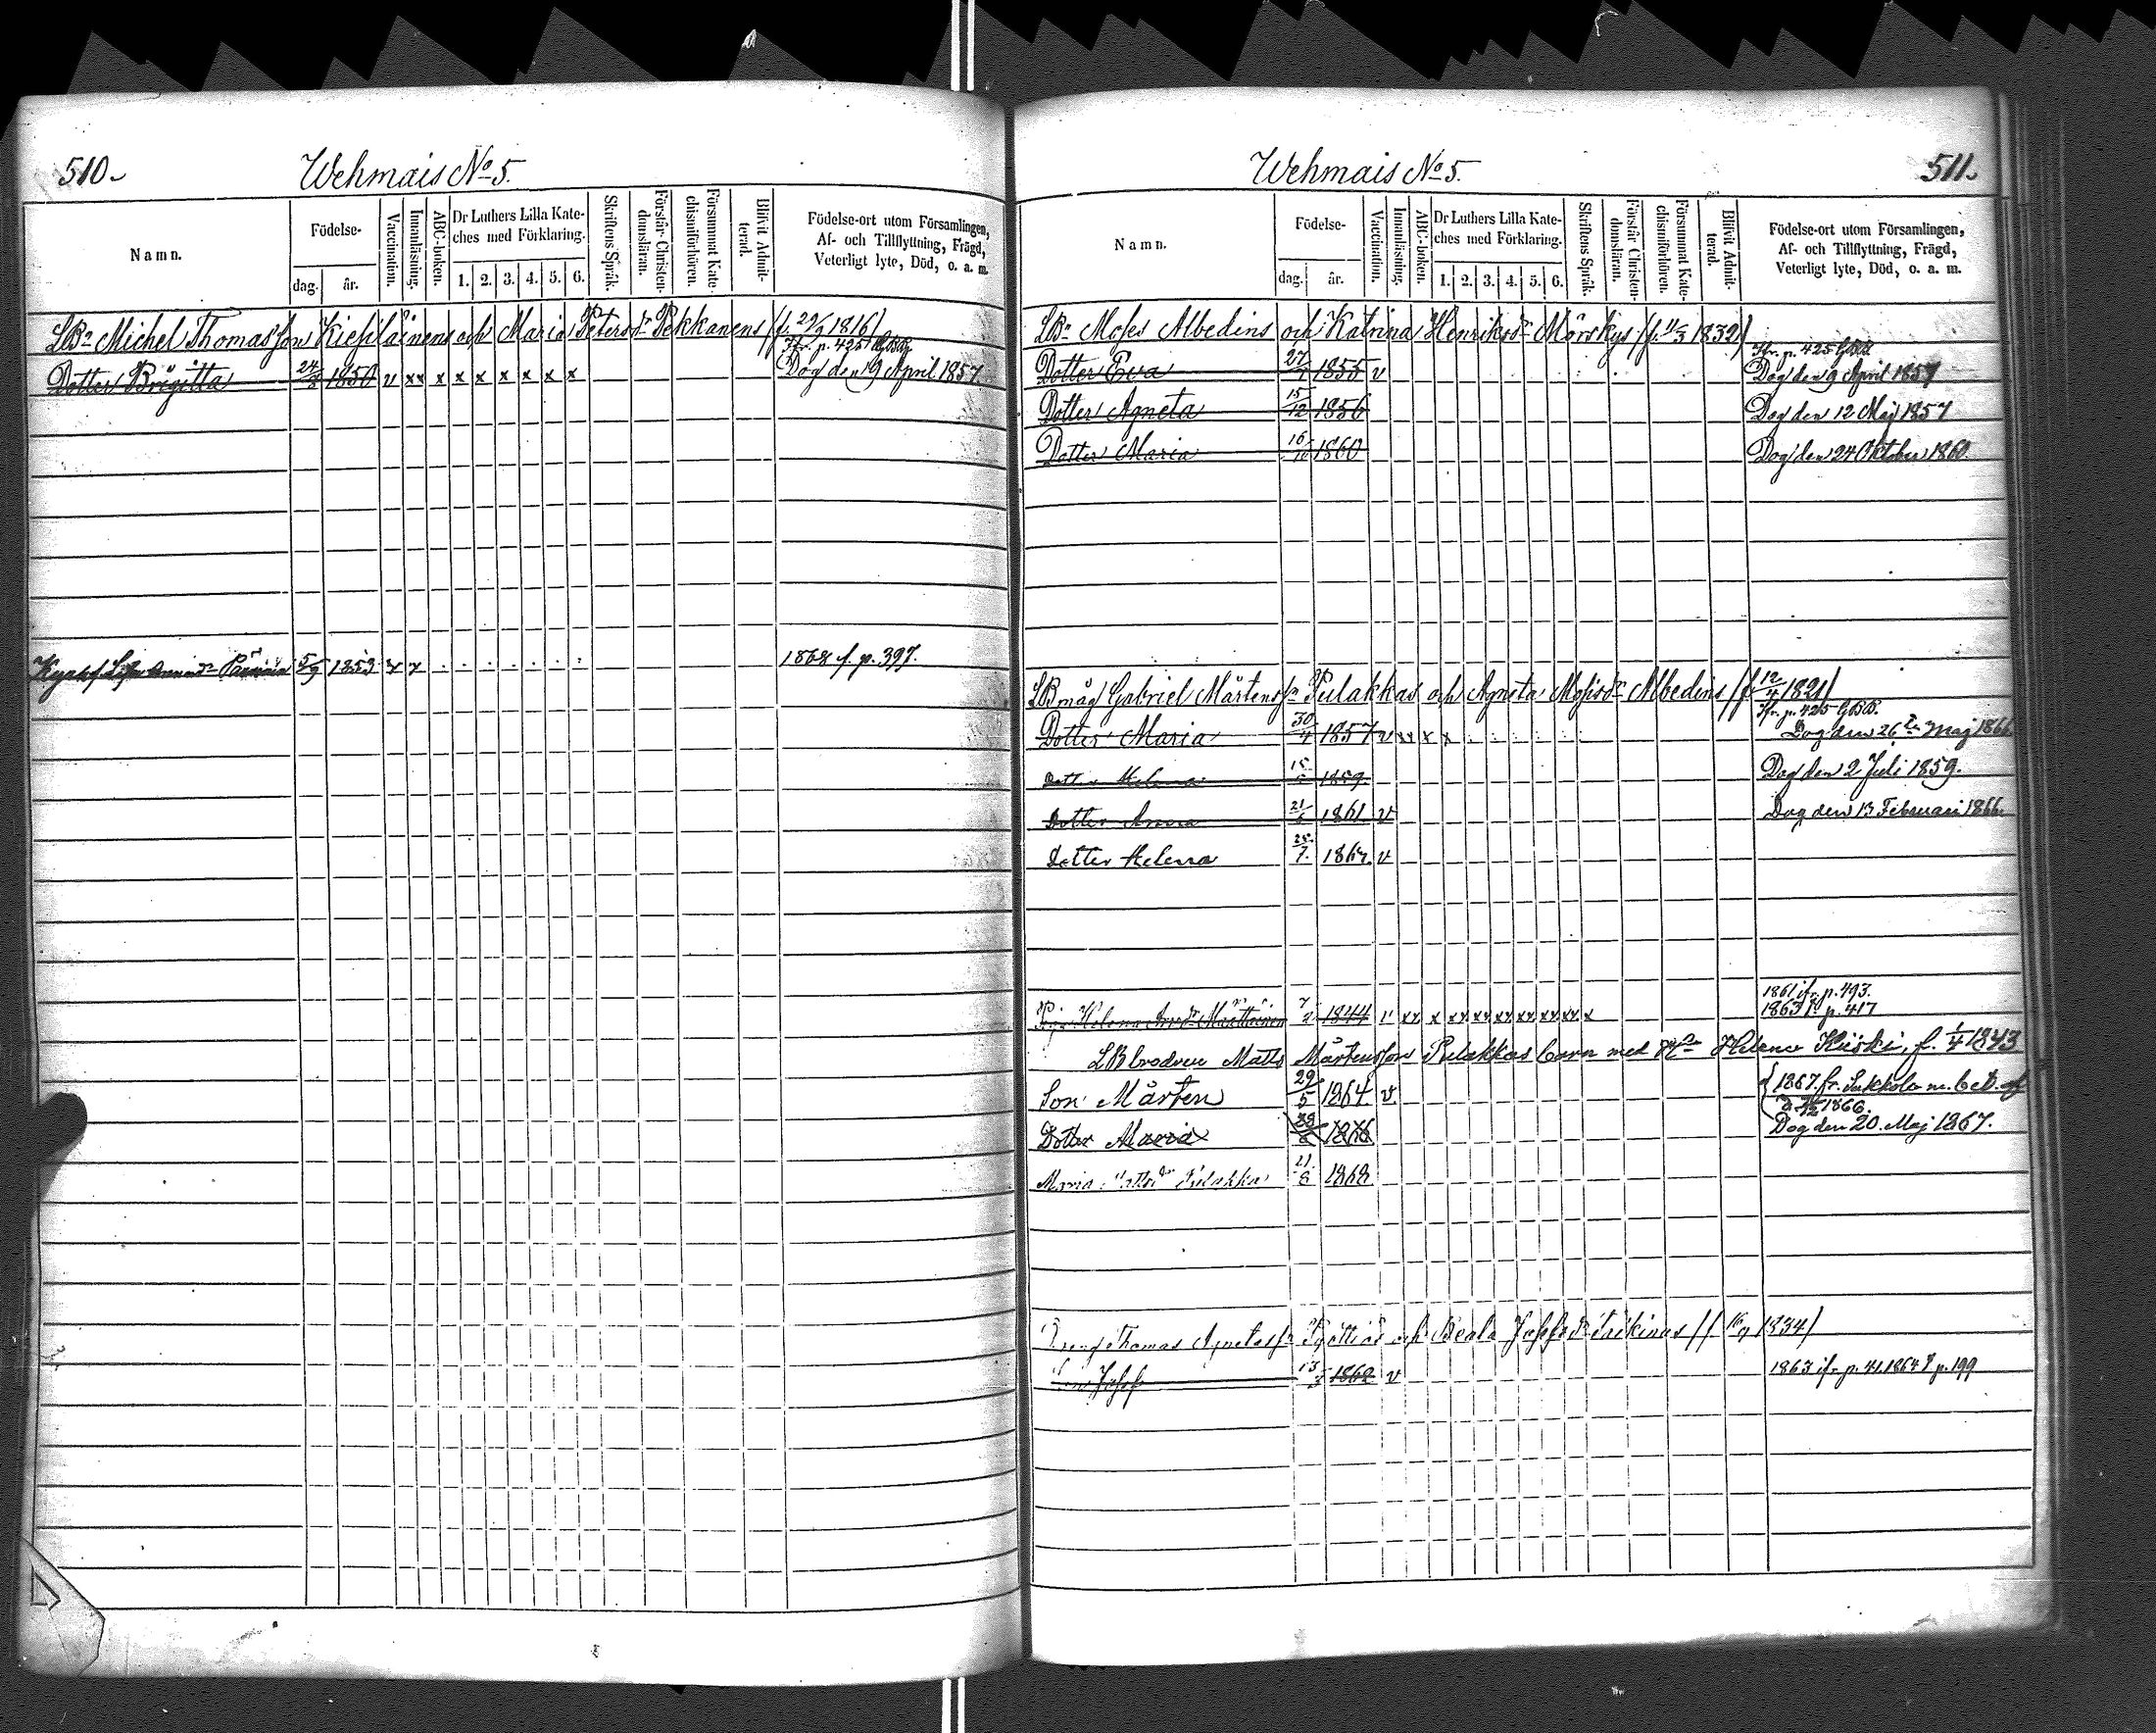 510.
Wehmais No 5.
Namn.
Födelse-
dag.
år.
Vaccination.
Innanläsning.
ABC-boken.
Dr Luthers Lilla Kate-
ches med Förklaring.
1. 2. 3. 4. 5. 6.
Skriftens Språk.
Förstår Christen-
domsläran.
Försummat Kate-
chismiförhören.
Blifvit Admit-
terad.
Födelse-ort utom Församlingen,
Af- och Tillflyttning, Frägd,
Veterligt lyte, Död, o. a. m.
LBn Michel Thomasson Kiehläinens och Maria Petersdr Pekkanens (f. 29/9 1816)
Ifr. p. 425 GBB
Dotter Brigitta 24/3 1850 v xx x x x x x x x Dog den 9 April 1857
5/9 1853 x x . . . . . . . 1868 f. p. 397.
511.
Wehmais No 5.
Namn.
Födelse-
dag.
år.
Vaccination.
Innanläsning.
ABC-boken.
Dr Luthers Lilla Kate-
ches med Förklaring.
1. 2. 3. 4. 5. 6.
Skriftens Språk.
Förstår Christen-
domsläran.
Försummat Kate-
chismiförhören.
Blifvit Admit-
terad.
Födelse-ort utom Församlingen,
Af- och Tillflyttning, Frägd,
Veterligt lyte, Död, o. a. m.
LBn Moses Albedins och Katrina Henriksdr Mörskys (f. 11/3 1832)
Ifr. p. 425 GBB
Dotter Eva 27/7 1855 v Dog den 9 April 1857
Dotter Agneta 15/12 1856 Dog den 12 Maj 1857
Dotter Maria 16/10 1860 Dog den 24 Oktober 1860.
LBmåg Gabriel Mårtenss Pulakkas och Agneta Mosisdr Albedins (f. 12/4 1821)
Ifr. p. 425 GBB.
Dotter Maria 30/4 1857 v xx x x Dog den 26 Maj 1866
Dotter Helena 15 1859 Dog den 2 Juli 1859.
Dotter Anna 21 1861 v Dog den 13 Februari 1866
Dotter Helena 7 v
1861 ifr. p. 493.
Helena 7 1844 v xx x xx xx xx xx xx xx x 1863 f. p. 417
LBbrodren Matts Mårtensson Pulakkas barn med Helena Kiiski, f. 1/4 1843
Son Mårten 29/5 1864 v 1867 fr. Sakkola m. bet. af
1866.
Dotter Maria 28 Dog den 20. Maj 1867.
Maria Pulakka 21/8 1868
Dreng Thomas och Beata Josefsdr 1834)
Son Josef 13 1862 v 1863 ifr p. 41. 1864 f p. 199